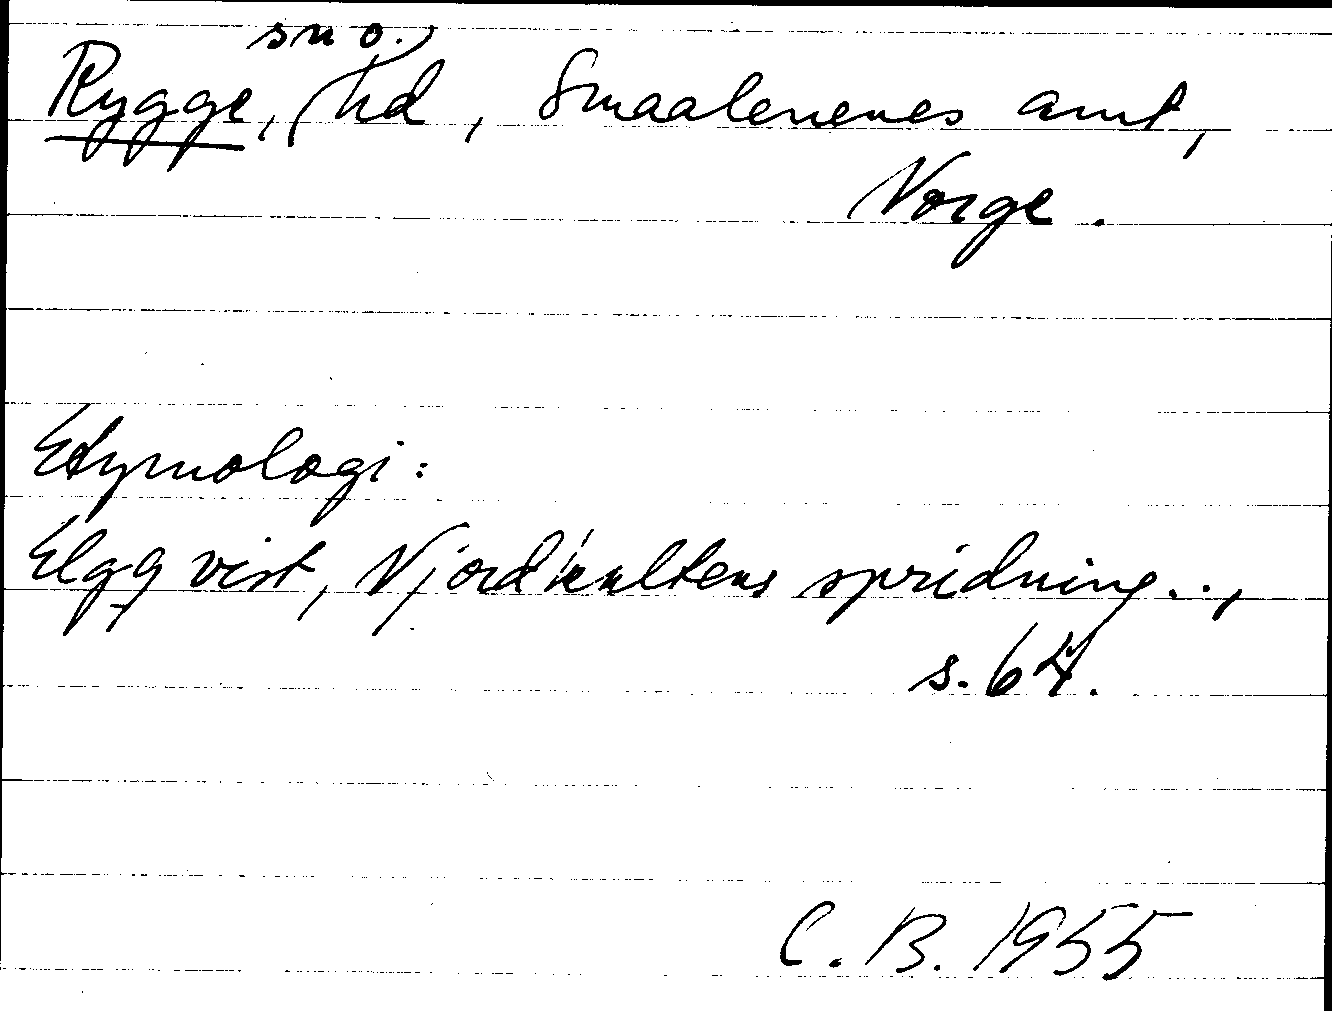 Rygge, sn o. hd, Smaalenenes amt,
Norge.
Etymologi:
Elgqvist, Njordkultens spridning..,
s. 64.
C. B. 1955